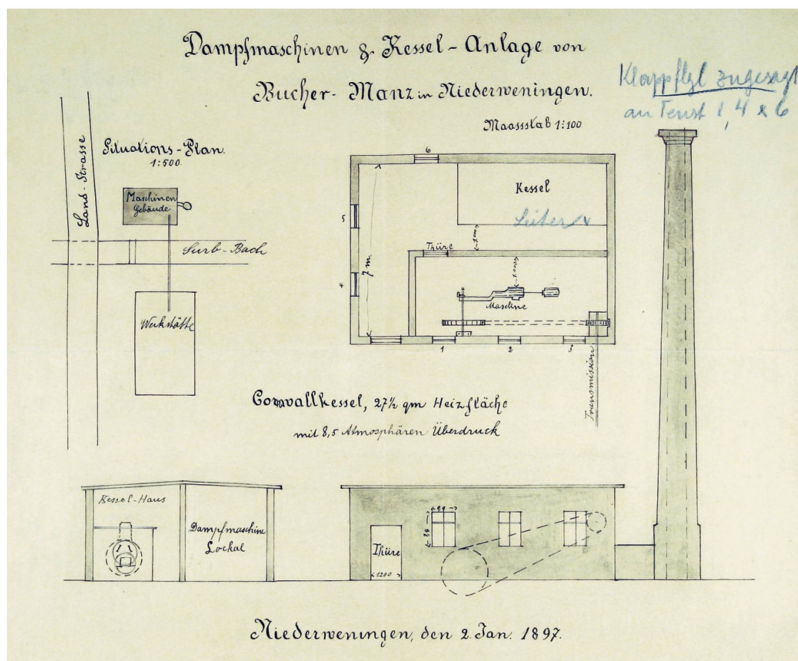 Dampfmaschinen & Kessel-Anlage von
Bucher-Manz in Niederweningen.
Klappflgl zugesagt
an Fenst 1, 4 & 6
Maassstab 1:100
Situations-Plan.
1:500.
Land-Strasse
Maschinen
Gebäude
Surb-Bach
Werkstätte
6
Kessel
5
Thüre
7 m
4
Maschine
1
2
3
Transmission
Cornwallkessel, 27½ qm Heizfläche
mit 8,5 Atmosphären Überdruck
Kessel-Haus
Dampfmaschine
Lockal
Thüre
1200
Niederweningen, den 2. Jan. 1897.